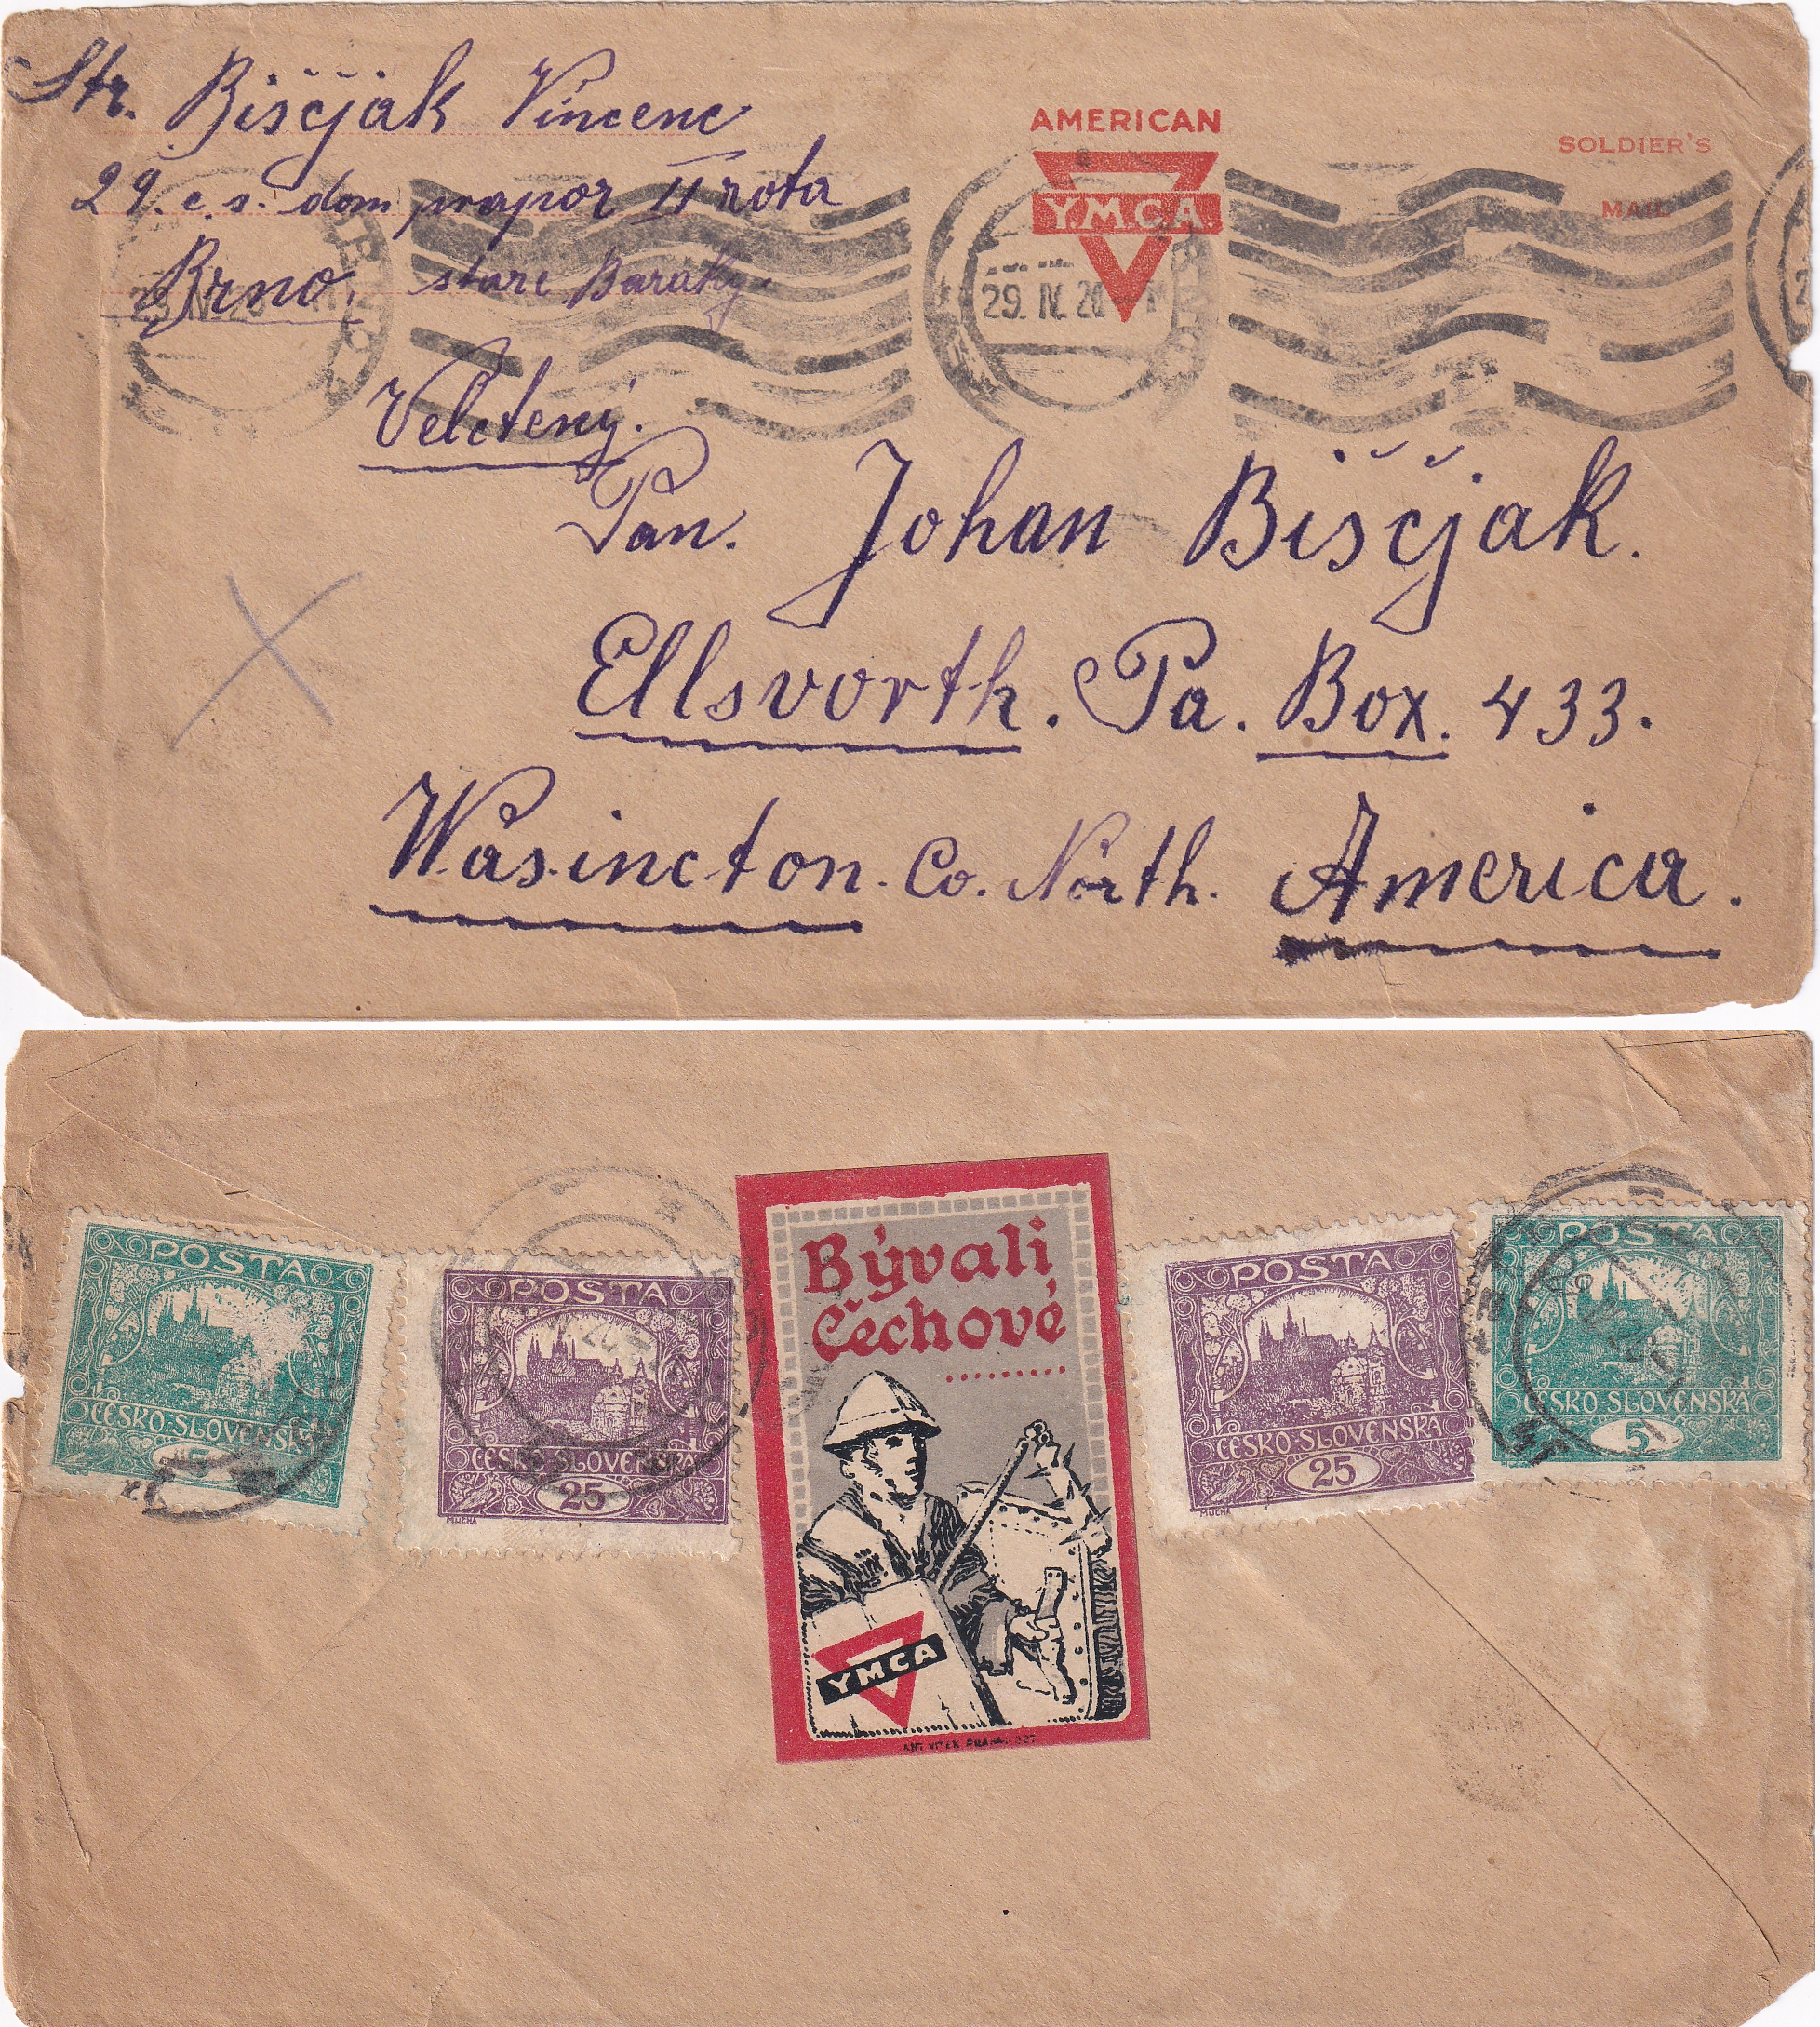 Str. Biščjak Vincenc
29. c. s. dom prapor II rota
Brno. stare Baraky.
AMERICAN
Y.M.C.A.
SOLDIER'S
MAIL
29. IV. 20
Velctený.
Pan. Johan Biščjak.
Ellsvorth. Pa. Box. 433.
Wasincton. Co. North. America.
POSTA
ČESKO·SLOVENSKÁ
5
POSTA
ČESKO·SLOVENSKÁ
25
MUCHA
Bývali
Čechové
.........
YMCA
POSTA
ČESKO·SLOVENSKÁ
25
MUCHA
POSTA
ČESKO·SLOVENSKÁ
5